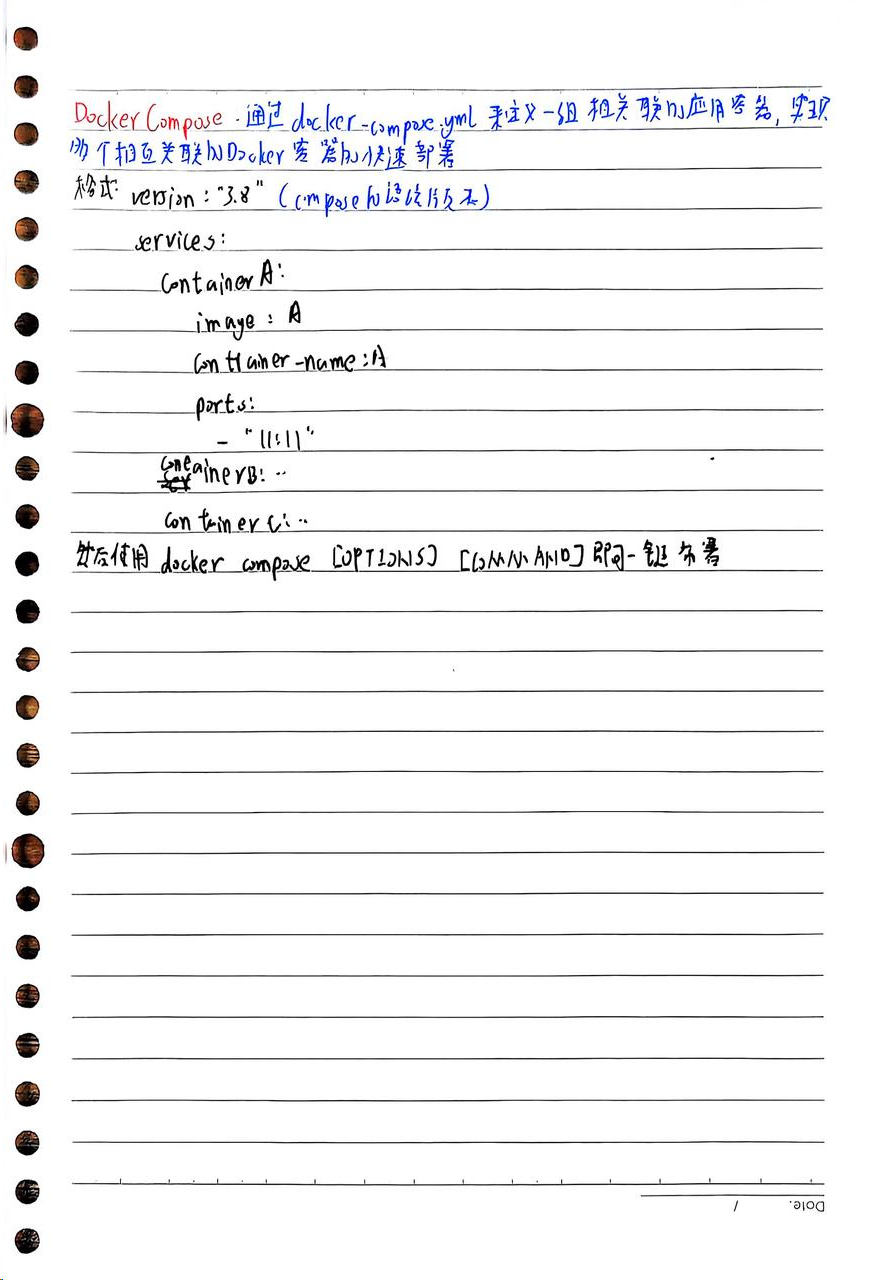 Docker Compose. 通过 docker-compose.yml 来定义一组相关联的应用容器, 实现
多个相互关联的Docker容器的快速部署
格式: version : "3.8" (compose的语法版本)
services:
container A:
image : A
container-name : A
ports:
- "11:11"
containerB: ..
container C: ..
然后使用 docker compose [OPTIONS] [COMMAND] 即可一键部署
Date. /